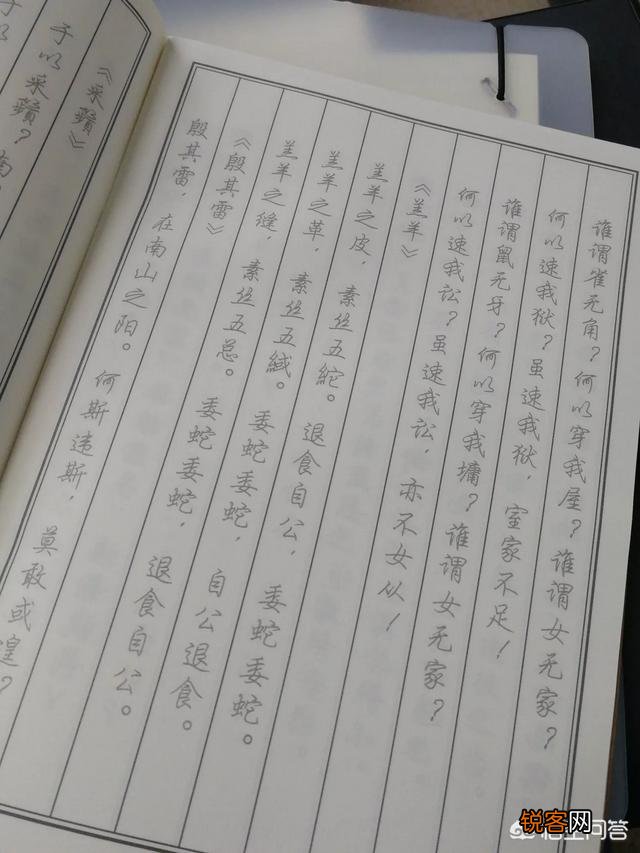 谁谓雀无角？何以穿我屋？谁谓女无家？
何以速我狱？虽速我狱，室家不足！
谁谓鼠无牙？何以穿我墉？谁谓女无家？
何以速我讼？虽速我讼，亦不女从！
《羔羊》
羔羊之皮，素丝五紽。退食自公，委蛇委蛇。
羔羊之革，素丝五緎。委蛇委蛇，自公退食。
羔羊之缝，素丝五总。委蛇委蛇，退食自公。
《殷其雷》
殷其雷，在南山之阳。何斯违斯，莫敢或遑？
《采蘋》
于以采蘋？南
于以
锐客网
悟空问答